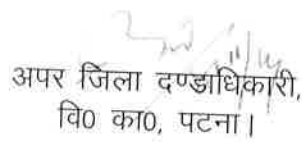 अपर जिला दण्डाधिकारी,
वि0 का0, पटना।